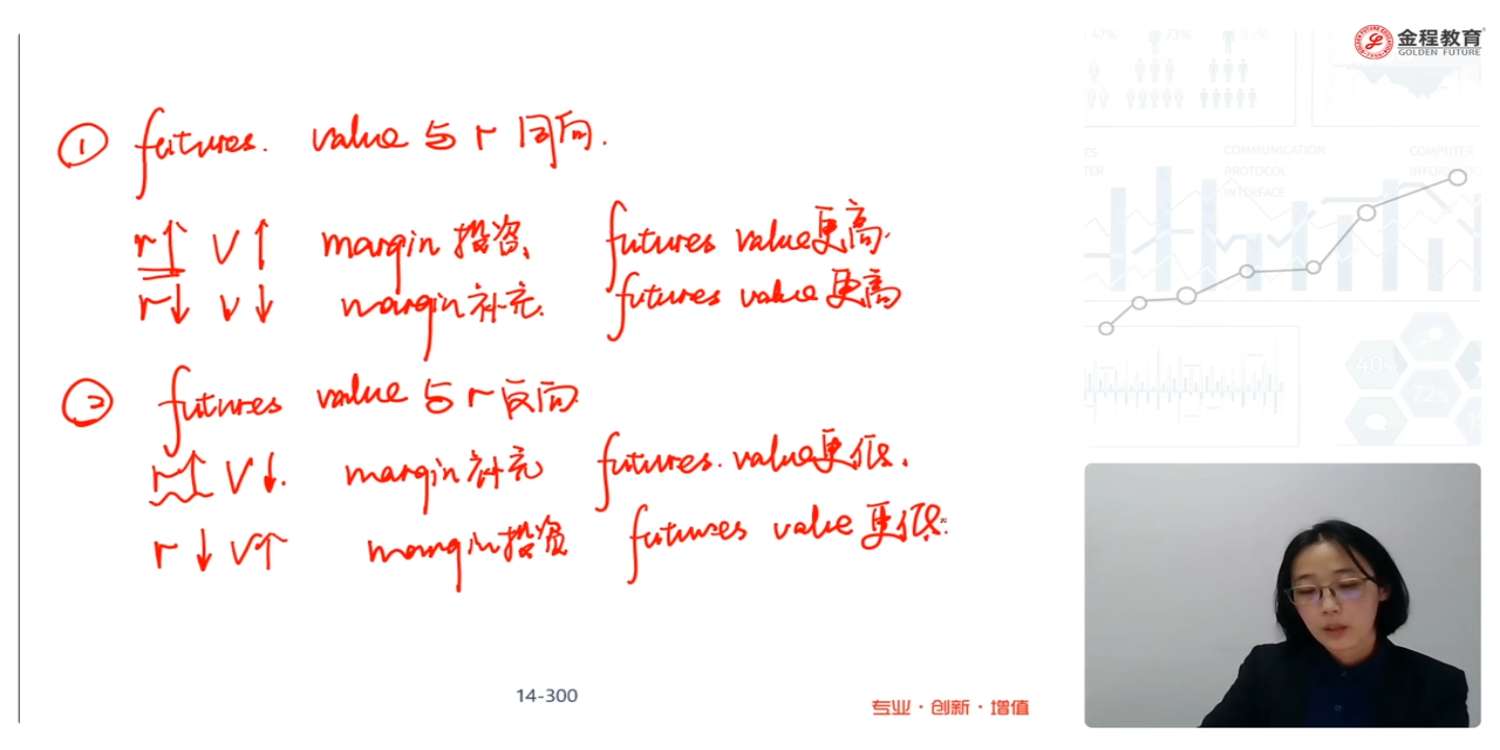 金程教育
GOLDEN FUTURE
① futures. value 与 r 同向.
r↑ V↑ margin 投资、 futures value更高.
r↓ V↓ margin 补充. futures value 更高
② futures value 与 r 反向
r↑ V↓. margin 补充 futures. value更低.
r↓ V↑ margin 投资 futures value 更低.
14-300
专业·创新·增值
47%
23%
COMMUNICATION
PROTOCOL
INTERFACE
COMPUTER
40%
72%